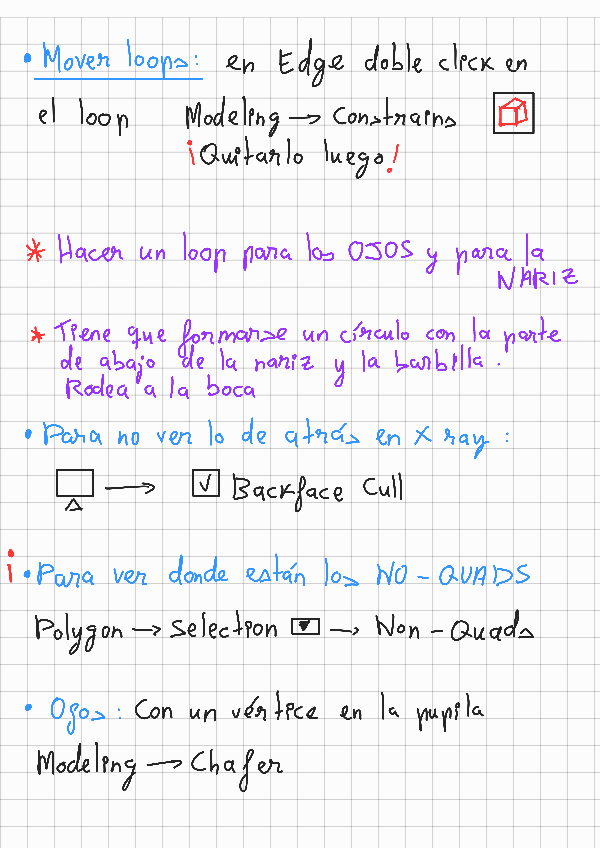 • Mover loops: en Edge doble click en
el loop Modeling → Constrains
¡Quitarlo luego!
* Hacer un loop para los OJOS y para la
NARIZ
* Tiene que formarse un círculo con la parte
de abajo de la nariz y la barbilla.
Rodea a la boca
• Para no ver lo de atrás en X ray:
→ Backface Cull
¡• Para ver donde están los NO-QUADS
Polygon → Selection → Non-Quads
• Ogos: Con un vértice en la pupila
Modeling → Chafer